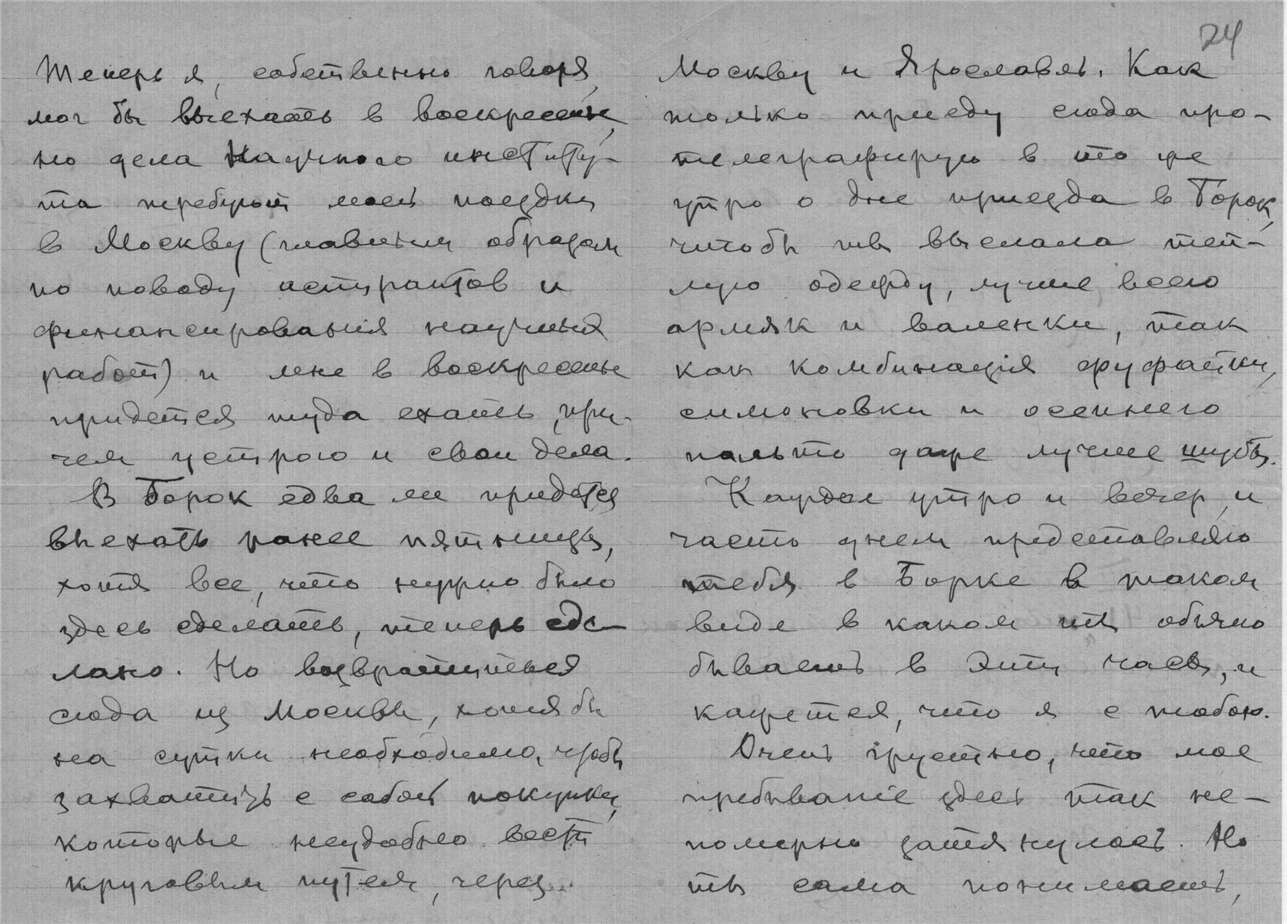 Теперь я, собственно говоря,
мог бы выехать в воскресенье,
но дела Научного институ-
та требуют моей поездки
в Москву (главным образом
по поводу аспирантов и
финансирования научных
работ) и мне в воскресенье
придется туда ехать, при-
чем устрою и свои дела.
В Борок едва ли придется
выехать ранее пятницы,
хотя все, что нужно было
здесь сделать, теперь сде-
лано. Но возвратиться
сюда из Москвы, хотя бы
на сутки необходимо, чтобы
захватить с собой покупки,
которые неудобно везти
круговым путем, через
24
Москву и Ярославль. Как
только приеду сюда про-
телеграфирую в то же
утро о дне приезда в Борок,
чтобы ты выслала теп-
лую одежду, лучше всего
армяк и валенки, так
как комбинація фуфайки,
симоновки и осеннего
пальто даже лучше шубы.
Каждое утро и вечер, и
часто днем представляю
тебя в Борке в таком
виде в каком ты обычно
бываешь в эти часы, и
кажется, что я с тобою.
Очень грустно, что мое
пребываніе здесь так не-
померно затянулось. Но
ты сама понимаешь,